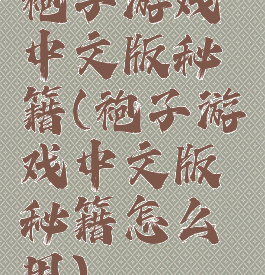 袍子游戏
中文版秘
籍(袍子游
戏中文版
秘籍怎么
用)